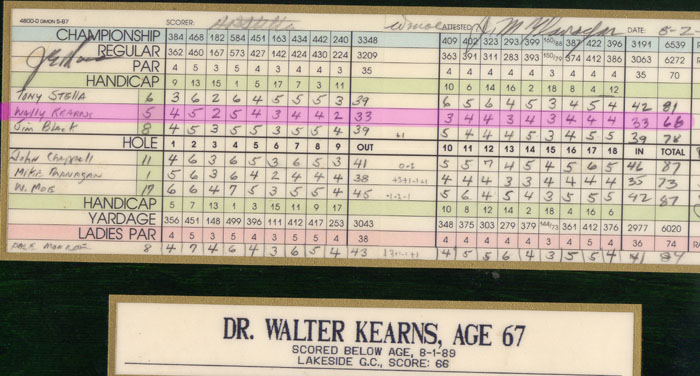 4800-0 DIMON 5-87 SCORER: ATTESTED DATE: 8-2-
CHAMPIONSHIP 384 468 182 584 451 163 434 442 240 3348 409 402 323 293 399 160/88 387 422 396 3191 6539
REGULAR 362 460 167 573 427 142 424 430 224 3209 363 391 311 283 393 160/79 374 412 386 3063 6272
PAR 4 5 3 5 4 3 4 4 3 35 4 4 4 4 4 3 4 4 4 35 70
HANDICAP 9 13 15 1 5 17 7 3 11 10 6 14 16 2 18 8 4 12
Tony Stella 6 3 6 2 6 4 5 5 5 3 39 6 5 6 4 5 3 4 5 4 42 81
Wally Kearns 5 4 5 2 5 4 3 4 4 2 33 3 4 4 3 4 3 4 4 4 33 66
Jim Black 8 4 5 3 5 5 3 5 5 4 39 61 5 4 4 4 5 3 4 5 5 39 78
HOLE 1 2 3 4 5 6 7 8 9 OUT 10 11 12 13 14 15 16 17 18 IN TOTAL
John Chappell 11 4 6 3 6 5 3 6 5 3 41 5 5 7 4 5 4 5 6 5 46 87
Mike 1 1 5 3 6 4 2 4 4 4 38 4 4 4 3 3 4 4 4 4 35 73
W. Mois 17 6 6 4 7 5 3 5 5 4 45 -1-2-1 5 6 4 5 4 3 5 5 5 42 87
HANDICAP 5 7 13 1 3 15 11 9 17 10 8 12 14 2 18 4 16 6
YARDAGE 356 451 148 499 396 111 422 417 253 3043 348 375 303 279 379 144/73 361 412 376 2977 6020
LADIES PAR 4 5 3 5 4 3 5 5 4 38 4 4 4 4 4 3 4 5 4 36 74
8 4 7 4 6 4 3 6 5 4 43 4 5 5 6 4 3 5 5 4 41 84
DR. WALTER KEARNS, AGE 67
SCORED BELOW AGE, 8-1-89
LAKESIDE G.C., SCORE: 66